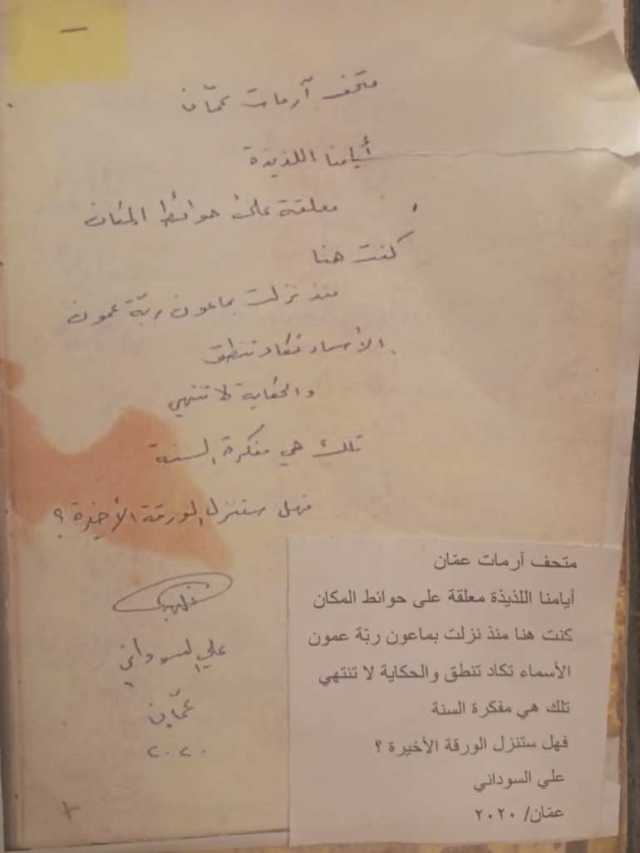 متحف آرمات عمّان
أيامنا اللذيذة
معلقة على حوائط المكان
كنت هنا
منذ نزلت بماعون ربّة عمون
الأسماء تكاد تنطق
والحكاية لا تنتهي
تلك هي مفكرة السنة
فهل ستنزل الورقة الأخيرة ؟
علي السوداني
عمّان
٢٠٢٠
متحف آرمات عمّان
أيامنا اللذيذة معلقة على حوائط المكان
كنت هنا منذ نزلت بماعون ربّة عمون
الأسماء تكاد تنطق والحكاية لا تنتهي
تلك هي مفكرة السنة
فهل ستنزل الورقة الأخيرة ؟
علي السوداني
عمّان/ ٢٠٢٠